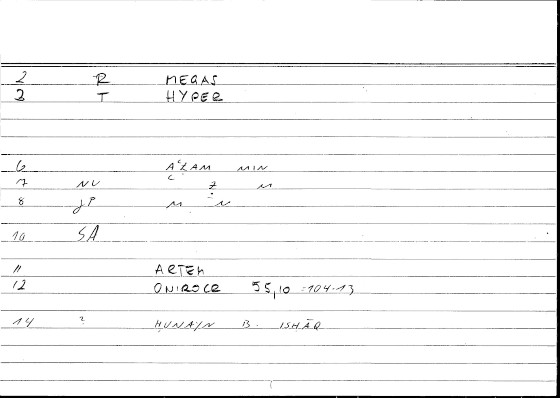 2 R MEGAS
3 T HYPER
6 AʿẒAM MIN
7 NU ʿ Ẓ M
8 JP M N
10 SA
11 ARTEM
12 ONIROCR 55,10 =104.13
14 ? ḤUNAYN B. ISḤĀQ